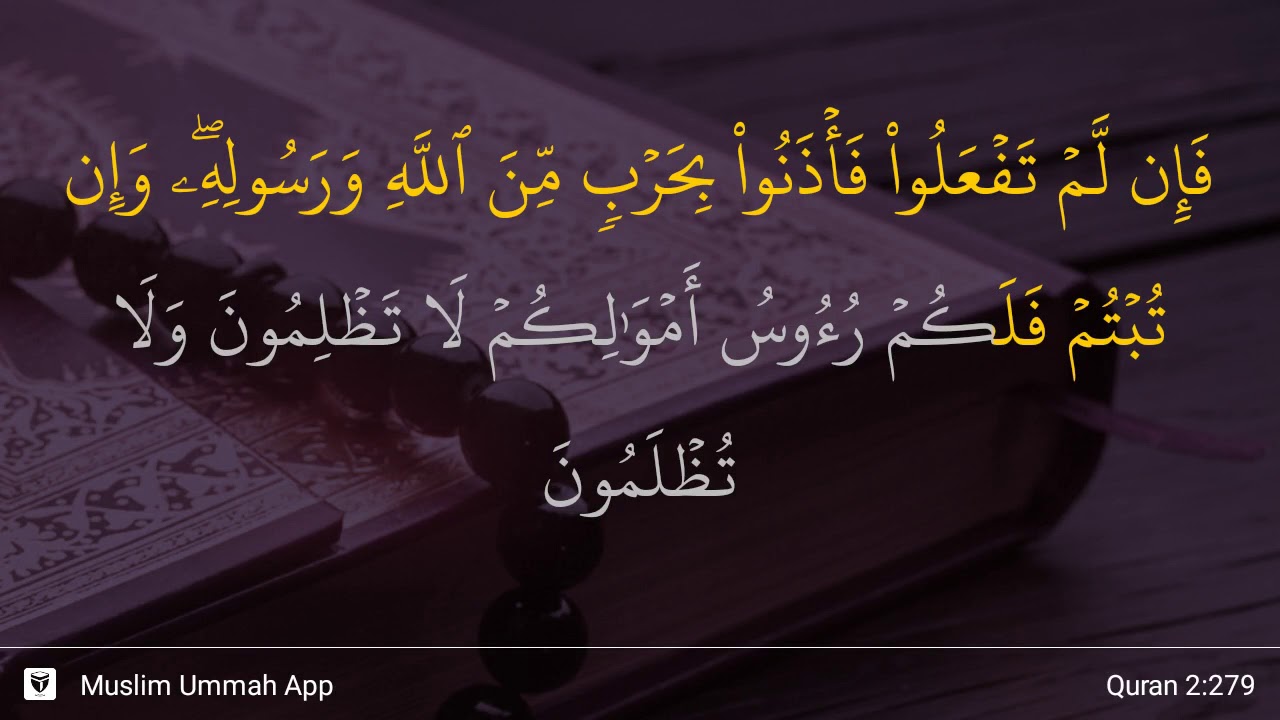 فَإِن لَّمۡ تَفۡعَلُواْ فَأۡذَنُواْ بِحَرۡبٖ مِّنَ ٱللَّهِ وَرَسُولِهِۦۖ وَإِن
تُبۡتُمۡ فَلَكُمۡ رُءُوسُ أَمۡوَٰلِكُمۡ لَا تَظۡلِمُونَ وَلَا
تُظۡلَمُونَ
Muslim Ummah App
Quran 2:279